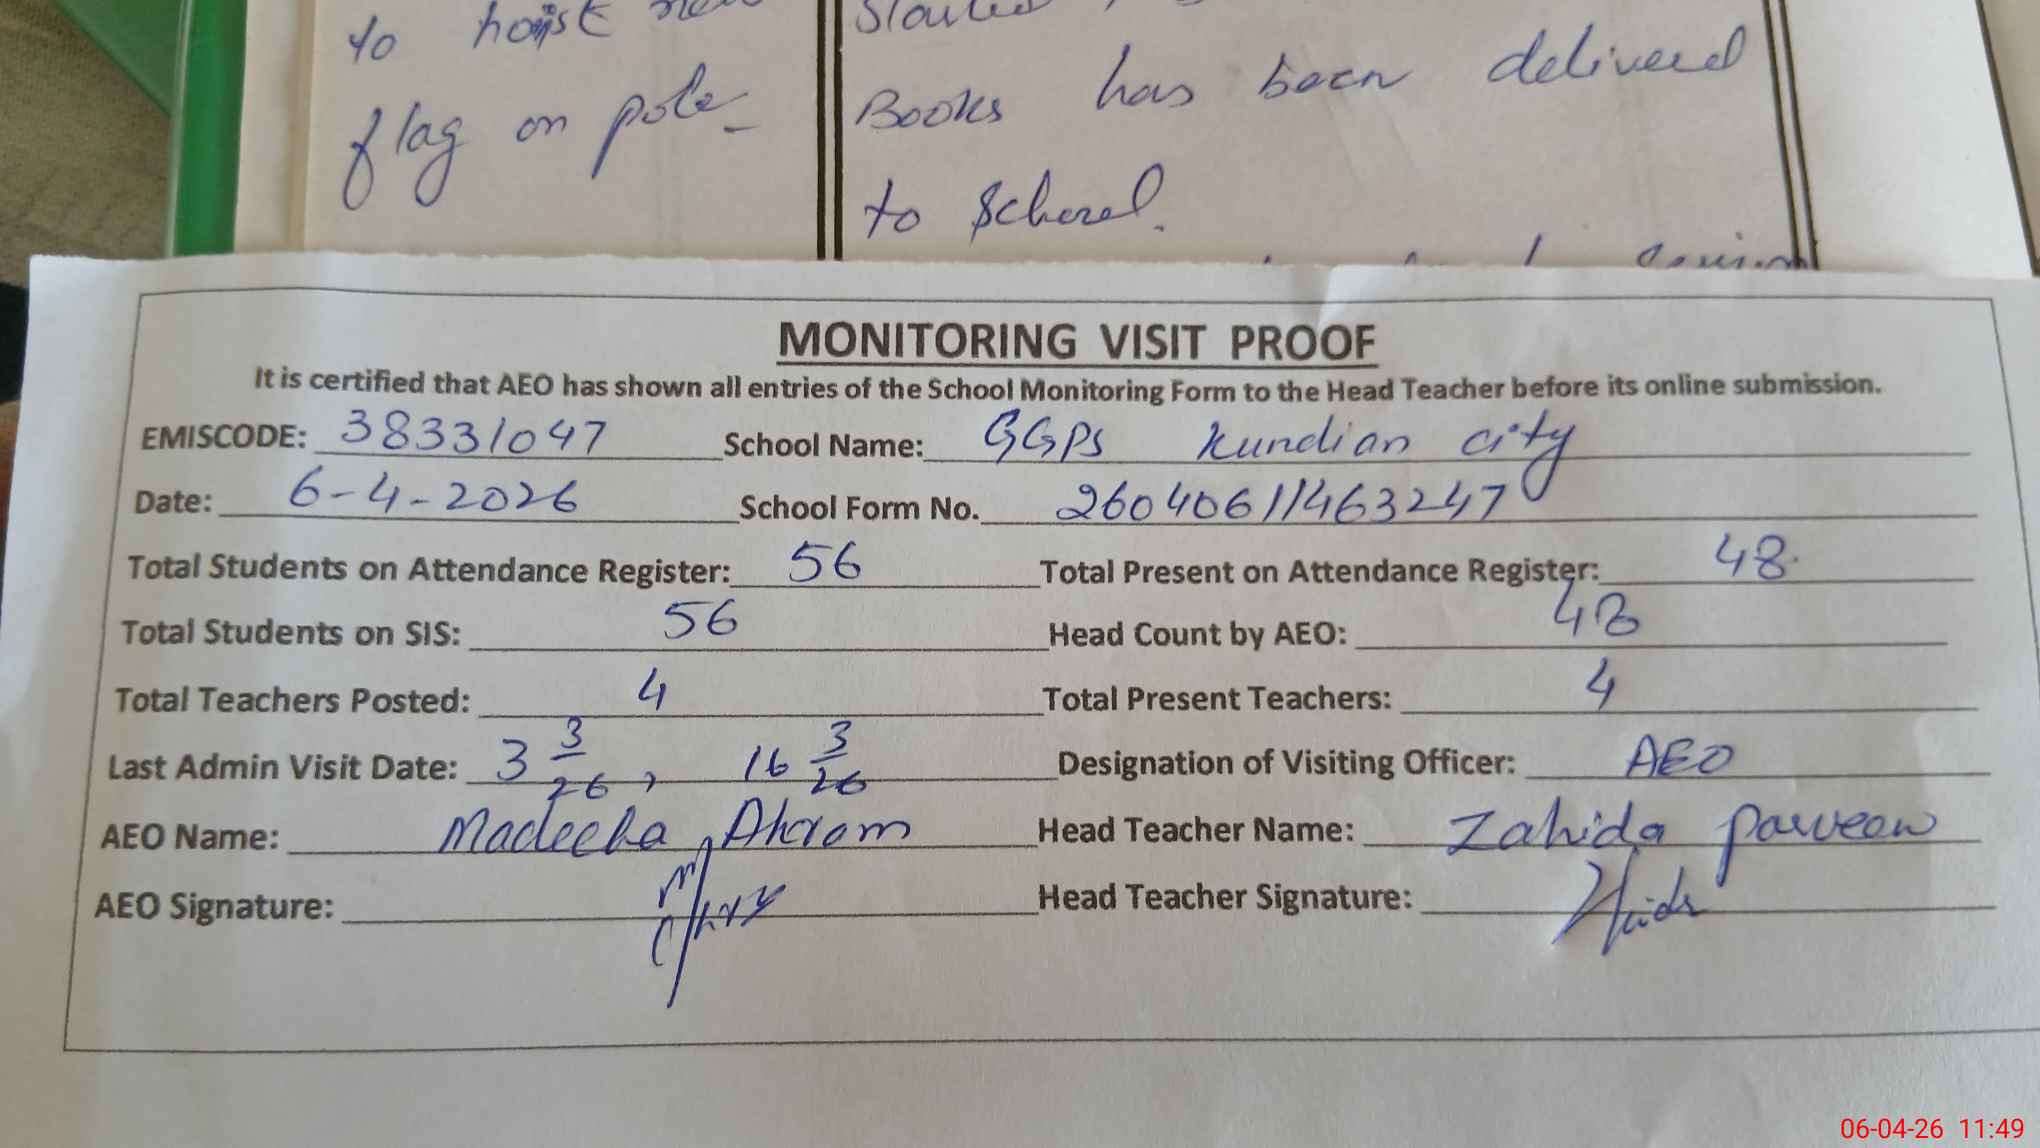 to hoist
flag on pole
Books has been delivered
to School.
MONITORING VISIT PROOF
It is certified that AEO has shown all entries of the School Monitoring Form to the Head Teacher before its online submission.
EMISCODE: 38331047 School Name: GGPS Kundian city
Date: 6-4-2026 School Form No. 26040611463247
Total Students on Attendance Register: 56 Total Present on Attendance Register: 48
Total Students on SIS: 56 Head Count by AEO: 48
Total Teachers Posted: 4 Total Present Teachers: 4
Last Admin Visit Date: 3 3/26, 16 3/26 Designation of Visiting Officer: AEO
AEO Name: Madeeha Akram Head Teacher Name: Zahida parveen
AEO Signature: Head Teacher Signature:
06-04-26 11:49